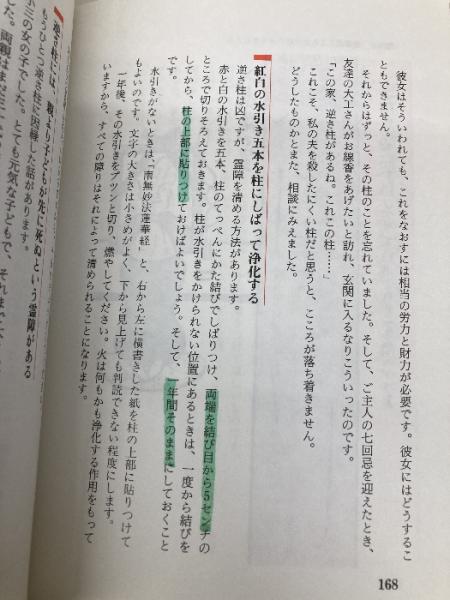 彼女はそういわれても、これをなおすには相当の労力と財力が必要です。彼女にはどうするこ
ともできません。
それからはずっと、その柱のことを忘れていました。そして、ご主人の七回忌を迎えたとき、
友達の大工さんがお線香をあげたいと訪れ、玄関に入るなりこういったのです。
「この家、逆さ柱があるね。これこの柱……」
これこそ、私の夫を殺したにくい柱だと思うと、こころが落ち着きません。
どうしたものかとまた、相談にみえました。
紅白の水引き五本を柱にしばって浄化する
逆さ柱は凶ですが、霊障を清める方法があります。
赤と白の水引きを五本、柱のてっぺんにかた結びでしばりつけ、両端を結び目から5センチの
ところで切りそろえておきます。柱が水引きをかけられない位置にあるときは、一度から結びを
してから、柱の上部に貼りつけておけばよいでしょう。そして、一年間そのままにしておくこと
です。
水引きがないときは、「南無妙法蓮華経」と、右から左に横書きした紙を柱の上部に貼りつけて
もよいのです。文字の大きさは小さめがよく、下から見上げても判読できない程度にします。
一年後、その水引きをプツンと切り、燃やしてください。火は何もかも浄化する作用をもって
いますから、すべての障りはそれによって清められることになります。
逆さ柱には、親より子どもが先に死ぬという霊障がある
もうひとつ逆さ柱に因縁した話があります。
小三の女の子でした。とても元気な子どもで、それまで
168